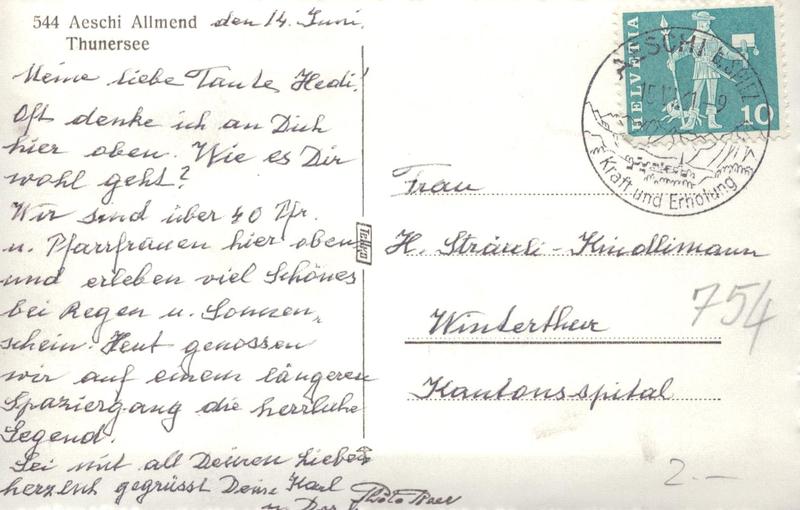 544 Aeschi Allmend den 14. Juni.
Thunersee
Meine liebe Tante Hedi!
Oft denke ich an Dich
hier oben. Wie es Dir
wohl geht?
Wir sind über 40 Pfr.
u. Pfarrfrauen hier oben
und erleben viel Schönes
bei Regen u. Sonnen-
schein. Heut genossen
wir auf einem längeren
Spaziergang die herrliche
Gegend.
Sei mit all Deinen Lieben
herzlich gegrüsst Deine Karl
u.
HELVETIA
10
AESCHI b. SPIEZ
Kraft und Erholung
Frau
H. Sträuli-Kindlimann
Winterthur
Kantonsspital
754
2.-